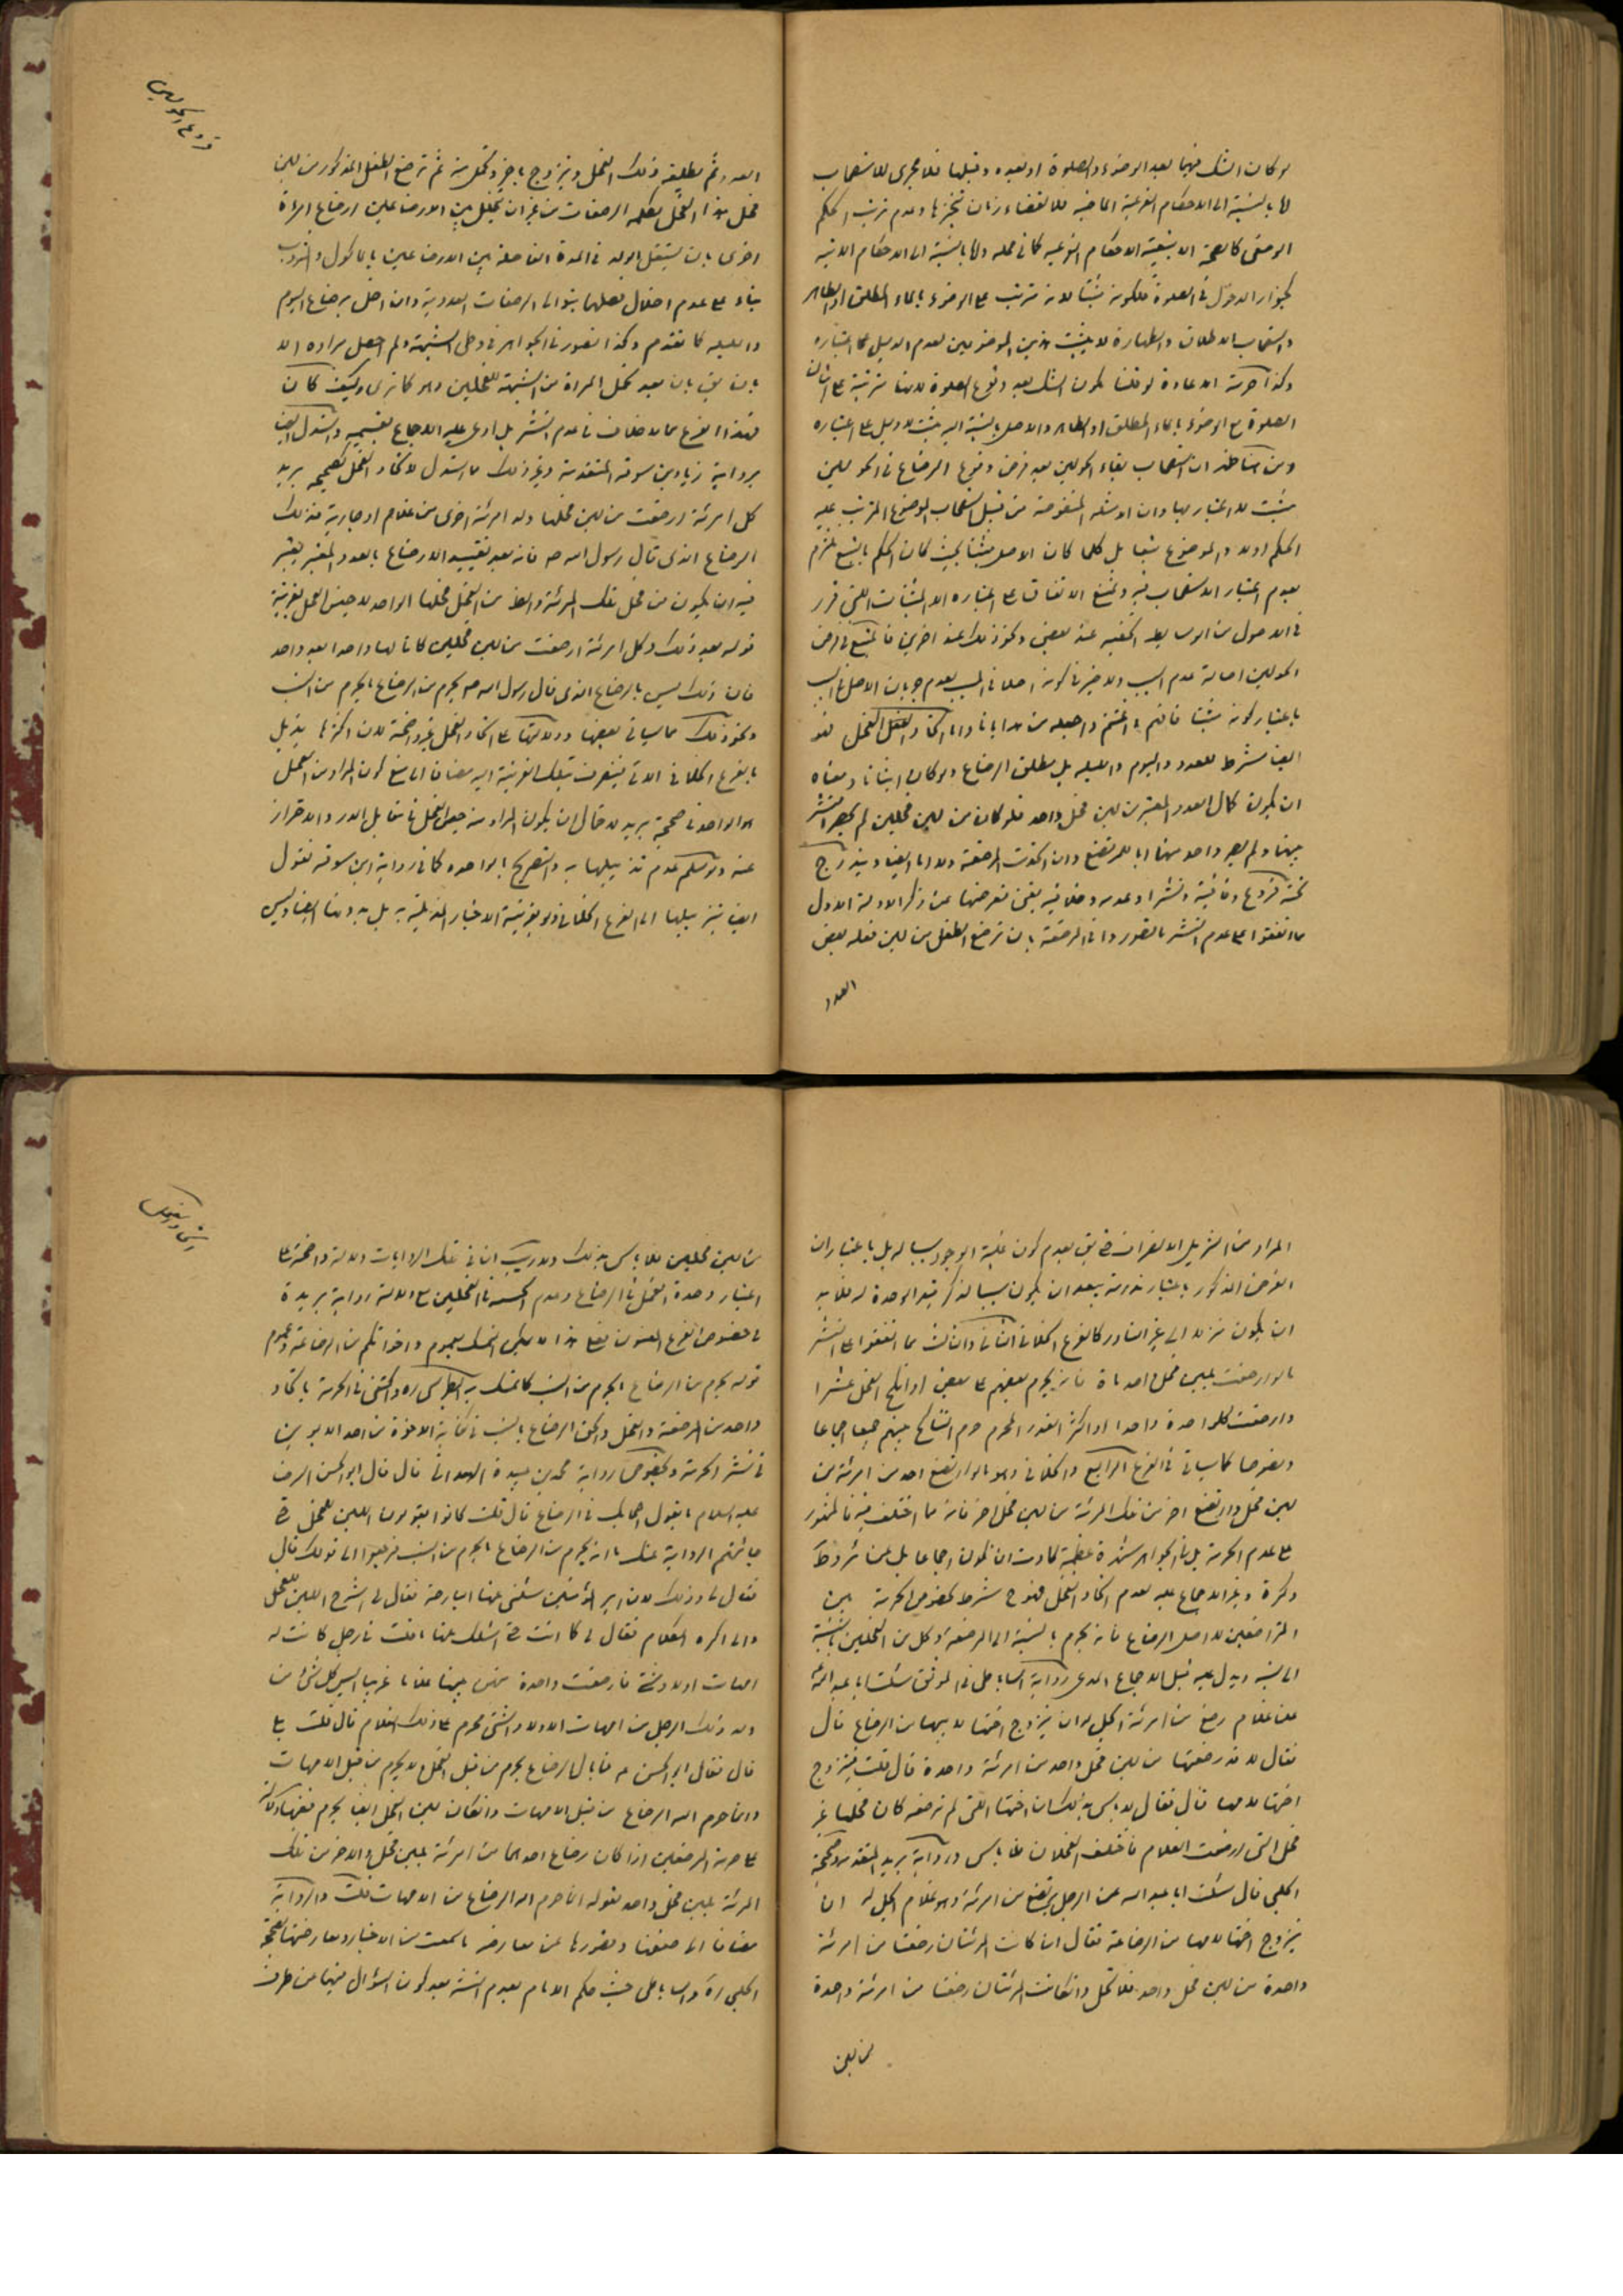 لو كان الشك فيها بعد الوضوء والصلوة او بعده وقبلها فلا مجرى للاستصحاب
لا بالنسبة الى الاحكام الفرعية الماضية للانقضاء زمان تنجزها وعدم ترتب الحكم
الوضعى كالصحة الا بتبعية الاحكام الشرعية كما فى محله ولا بالنسبة الى الاحكام الاتية
كجواز الدخول فى الصلوة فلكونه مثبتا لانه ترتب على الوضوء بالماء المطلق او الطاهر
واستصحاب الاطلاق والطهارة لا يثبت هذين الموضوعين لعدم الدليل على اعتباره
وكذا حرمة الاعادة لو قلنا بكون الشك بعد وقوع الصلوة لانها مترتبة على اتيان
الصلوة مع الوضوء بالماء المطلق او الطاهر والاصل بالنسبة اليه مثبت لا دليل على اعتباره
ومن هنا ظهر ان استصحاب بقاء الحولين بعد فرض وقوع الرضاع فى الحولين
مثبت لا اعتبار بها وان امثلة المنقوضة من قبيل استصحاب الموضوع المترتب عليه
الحكم اولا والموضوع بل كلما كان الاصل مثبتا بحيث كان الحكم بالتبع نلتزم
بعدم اعتبار الاستصحاب فيه ونمنع الاتفاق على اعتباره الا المثبتات التى قرر
فى الاصول من الوسايط الخفية عند بعض ونحو ذلك عند اخرين فالمتبع فى فرض
الحولين اصالة عدم السبب ولا ضير فى كونه اصلا فى المسبب لعدم جريان الاصل فى السبب
باعتبار كونه مثبتا فافهم واغتنم واجعله من هدايانا واما اتحاد الفحل فهو
ايضا شرط للعدد واليوم والليلة بل مطلق الرضاع ولو كان انباتا ومعناه
ان يكون كمال العدد المعتبر من لبن فحل واحد فلو كان من لبن فحلين لم يحصل النشر
بينها ولم يصر واحد منها ابا للمرتضع وان اتحدت المرضعة ولا اما ايضا ويندرج
تحته فروع وفاقية ونشرا وعدمه وخلافية ينبغى تعرضها عند ذكر الادلة الاول
ما اتفقوا على عدم النشر بالصور واتى المرضعة بان ترضع الطفل من لبن فحله بعض
العدد
فروع الحولين
العدد ثم يطلقه ذلك الفحل ويتزوج باخر وتحمل منه ثم ترضع الطفل المذكور من لبن
فحل هذا الفحل بتكملة الرضعات من غير ان يتخلل بين الارضاعين ارضاع امراة
اخرى بان يستقل الولد فى المدة الفاصلة بين الارضاعين بالماكول والمشروب
بناء على عدم اخلال فصلها بتوالى الرضعات العددية وان اخل برضاع اليوم
والليلة كما تقدم وكذا تصور فى الجواهر فى وطى الشبهة ولم احصل مراده الا
بان يق بان بعد تحمل المراة من الشبهة للفحلين وهو كما ترى وكيف كان
فهذا الفرع مما لا خلاف فى عدم النشر بل ادعى عليه الاجماع بقسميه واستدل ايضا
برواية زياد بن سوقة المتقدمة وغير ذلك ما استدل لاتحاد الفحل كصحيحه بريد
كل امرئة ارضعت من لبن فحلها ولد امرئة اخرى من غلام او جارية فذلك
الرضاع الذى قال رسول الله ص فانه بعد تقييد الارضاع بالعدد المعتبر يعتبر
فيه ان يكون من فحل تلك المرئة والظ من الفحل فحلها الواحد لا جنس الفحل بقرينة
قوله بعد ذلك وكل امرئة ارضعت من لبن فحلين كانا لها واحدا بعد واحد
فان ذلك ليس بالرضاع الذى قال رسول الله ص يحرم من الرضاع ما يحرم من النسب
ونحو ذلك مما سياتى بعضها ودلالتها على اتحاد الفحل غير واضحة لان اكثرها يذيل
بالفرع الخلافى الاتى فينصرف بتلك القرينة اليه مضافا الى منع كون المراد من الفحل
هو الواحد فى صحيحة بريد لاحتمال ان يكون المراد منه جعل الفحل فى مقابل الدر والاحتراز
عنه ولو سلم عدم تذييلها به والتصريح بالواحد كما فى رواية ابن سوقة نقول
ايضا بتنزيلها الى الفرع الخلافى ولو بقرينة الاخبار المذيلة به بل بدونها ايضا وليس
المراد من التنزيل الانصراف حتى يق بعدم كون غلبة الوجود سببا له بل باعتبار ان
الفرض المذكور باعتبار ندرته يبعد ان يكون سببا لذكر قيد الوحدة له فلابد
ان يكون تنزيلا الى غير النادر كالفرع الخلافى الثانى وان شئت مما اتفقوا على النشر
ما لو ارضعت بلبن فحل واحد ماة فانه يحرم بعضهم على بعض او انكح الفحل عشرا
وارضعت كلواحدة واحدا او اكثر القدر المحرم حرم التناكح بينهم جميعا اجماعا
ونصوصا كما سياتى فى الفرع الرابع والخلافى وهو ما لو ارتضع احد من امرئة من
لبن فحل وارتضع اخر من تلك المرئة من لبن فحل اخر فانه مما اختلف فيه فالمشهور
على عدم الحرمة بل فى الجواهر شهرة عظيمة كادت ان تكون اجماعا بل عن ئر وط
وكرة وغيرها الاجماع عليه لعدم اتحاد الفحل فهو ح شرط لخصوص الحرمة بين
المتراضعين لا اصل الرضاع فانه يحرم بالنسبة الى المرضعة وكل من الفحلين بالنسبة
الى نسبه ويدل عليه قبل الاجماع المدعى رواية الساباطى فى الموثق سئلت ابا عبد الله
عن غلام رضع من امرئة ايحل له ان يتزوج اختها لابيها من الرضاع قال
فقال لا قد رضعتها من لبن فحل واحد من امرئة واحدة قال قلت فيتزوج
اختها لامها قال فقال لا باس بذلك ان اختها التى لم ترضعه كان فحلها غير
فحل التى ارضعت الغلام فاختلف الفحلان فلا باس ورواية بريد المتقدمة وصحيحة
الحلبى قال سئلت ابا عبد الله عن الرجل يرتضع من امرئة وهو غلام ايحل له ان
يتزوج اختها لامها من الرضاعة فقال ان كانت المرئتان رضعتا من امرئة
واحدة من لبن فحل واحد فلا تحل وان كانت المرئتان رضعتا من امرئة واحدة
من لبن
من لبن فحلين فلا باس بذلك ولا ريب ان فى تلك الروايات دلالة واضحة على
اعتبار وحدة الفحل فى الرضاع وعدم الحرمة فى الفحلين مع دلالة رواية بريدة
فى خصوص الفرع العنوان فعلى هذا لا يمكن التمسك بعموم واخواتكم من الرضاعة وعموم
قوله يحرم من الرضاع ما يحرم من النسب كما تمسك به الطبرسى ره واكتفى فى الحرمة باتحاد
واحد من المرضعة والفحل والحق الرضاع بالنسب فى كفاية الاخوة من احد الابوين
فى نشر الحرمة وبخصوص رواية محمد بن عبيدة الهمدانى قال قال ابو الحسن الرضا
عليه السلام ما يقول اصحابك فى الرضاع قال قلت كانوا يقولون اللبن للفحل حتى
جائتهم الرواية عنك بانه يحرم من الرضاع ما يحرم من النسب فرجعوا الى قولك قال
فقال لى وذلك لان امير المؤمنين سئلنى عنها البارحة فقال لى اشرح اللبن للفحل
وانا اكره الكلام فقال لى كما انت حتى اسئلك عنها ما قلت فى رجل كانت له
امهات اولاد شتى فارضعت واحدة منهن بلبنها غلاما غريبا اليس كل شئ من
ولد ذلك الرجل من امهات الاولاد الشتى محرم على ذلك الغلام قال قلت بلى
قال فقال ابو الحسن ع فما بال الرضاع يحرم من قبل الفحل ولا يحرم من قبل الامهات
وانما حرم الله الرضاع من قبل الامهات وانكان لبن الفحل ايضا يحرم
على حرمة المرضعين اذا كان رضاع احدهما من امرئة بلبن فحل والاخر من تلك
المرئة بلبن فحل واحد بقوله انما حرم الله الرضاع من الامهات قلت والرواية
مضافا الى ضعفها وقصورها عن معارضة ما سمعت من الاخبار ومعارضتها لصحيحة
الحلبى رة والساباطى حيث حكم الامام بعدم النشر بعد كون السؤال فيهما من طرف